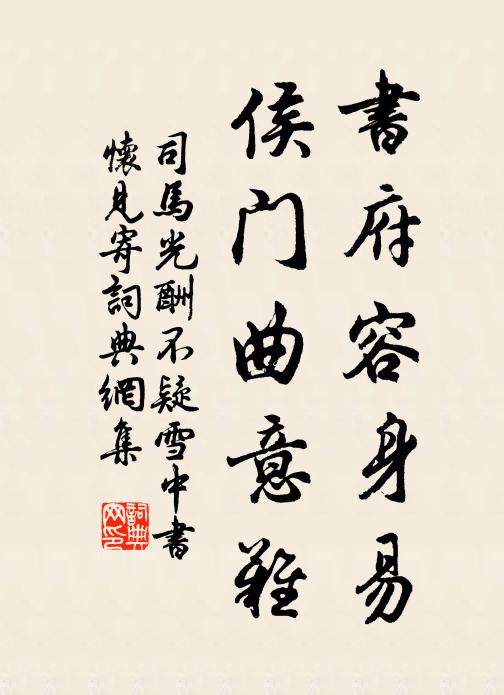 書府容身易
侯门曲意難
司馬光酬不疑雪中書
懷見寄詞典網集
詞典网印